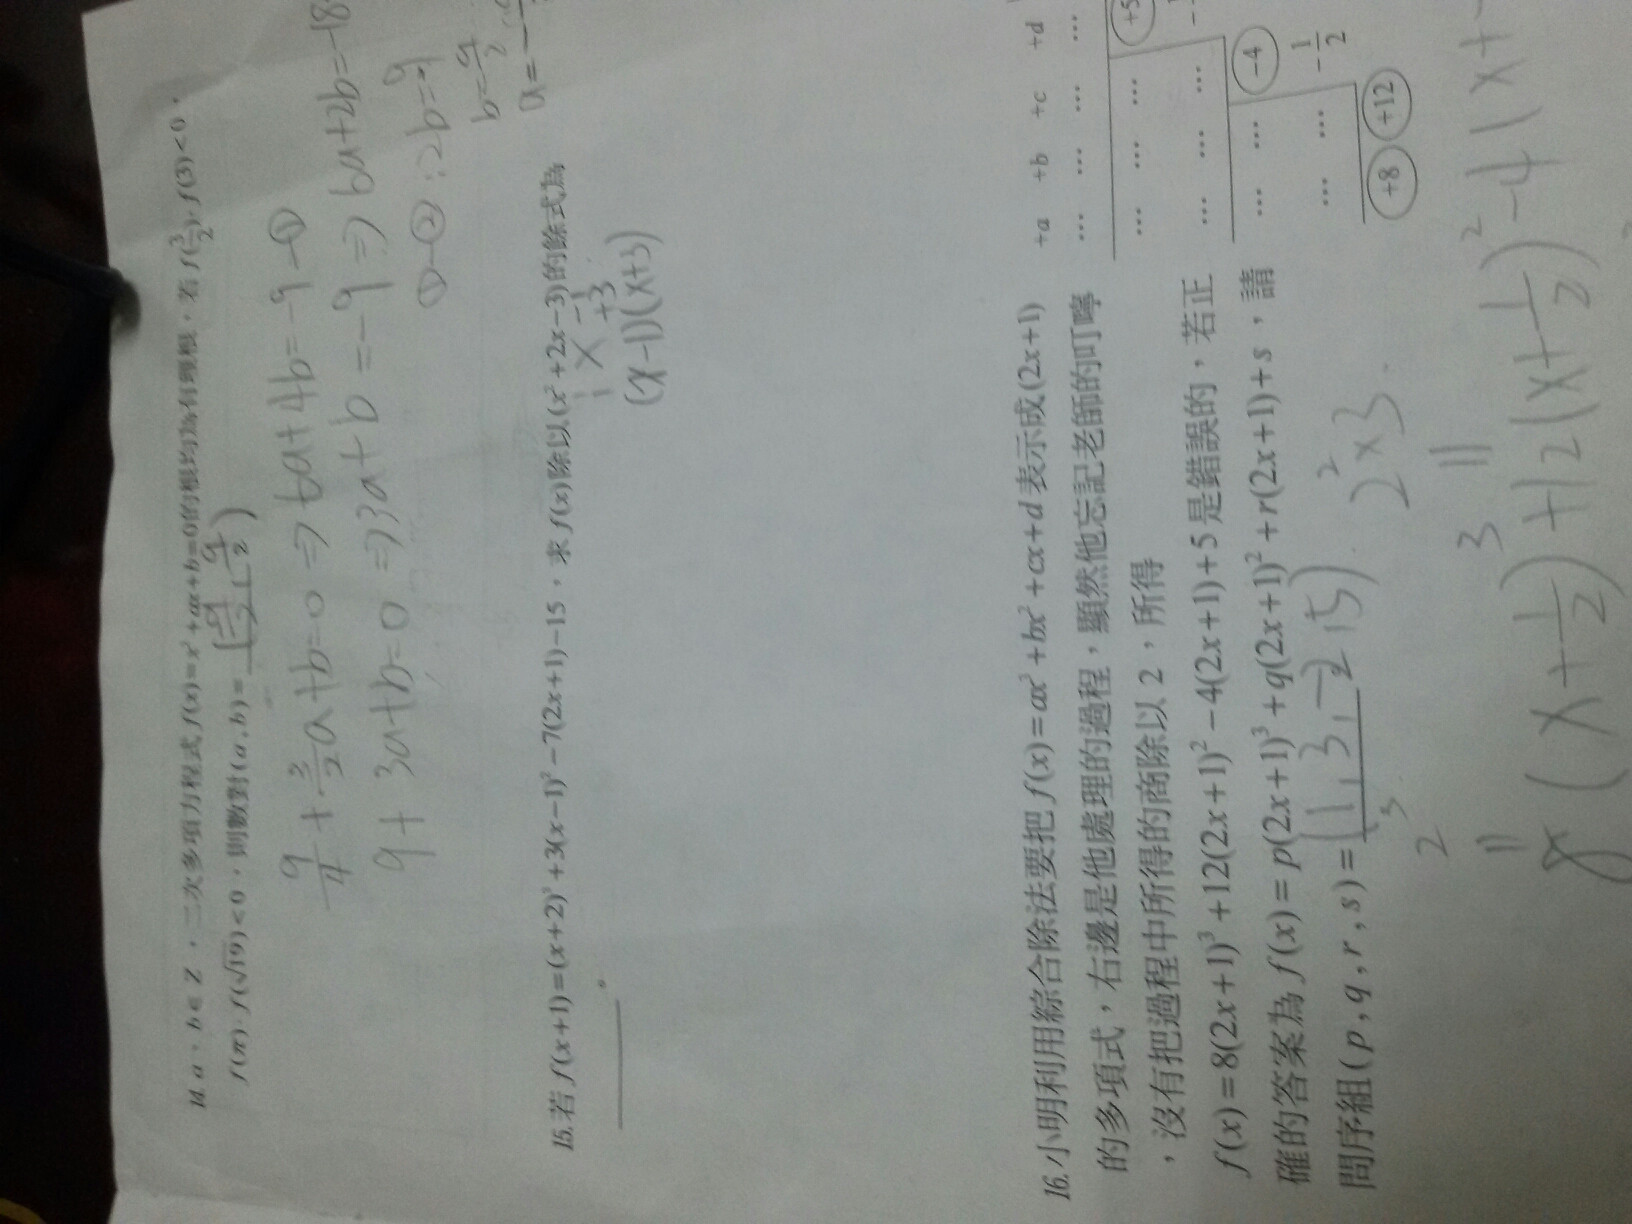 14. a、b∈Z，二次多項方程式 f(x)=x²+ax+b=0的根均為有理根，若 f(3/2)·f(3)<0，
f(π)·f(√19)<0，則數對(a,b)=
9/4+3/2a+b=0⇒6a+4b=-9-①
9+3a+b=0⇒3a+b=-9⇒6a+2b=-18
①-②:2b=9
b=9/2
a=-
15. 若 f(x+1)=(x+2)³+3(x-1)²-7(2x+1)-15，求 f(x)除以(x²+2x-3)的餘式為
。
1 -1
1 +3
(x-1)(x+3)
16. 小明利用綜合除法要把 f(x)=ax³+bx²+cx+d 表示成(2x+1)
的多項式，右邊是他處理的過程，顯然他忘記老師的叮嚀
，沒有把過程中所得的商除以 2，所得
f(x)=8(2x+1)³+12(2x+1)²-4(2x+1)+5是錯誤的，若正
確的答案為 f(x)=p(2x+1)³+q(2x+1)²+r(2x+1)+s，請
問序組(p,q,r,s)=(1,3,-2,5)
+a +b +c +d
... ... ... ...
... ... ... +5
... ... ...
... ... -4
... ... -1/2
+8 +12
2³ 2²×3
8(x+1/2)³+12(x+1/2)²-4(x+